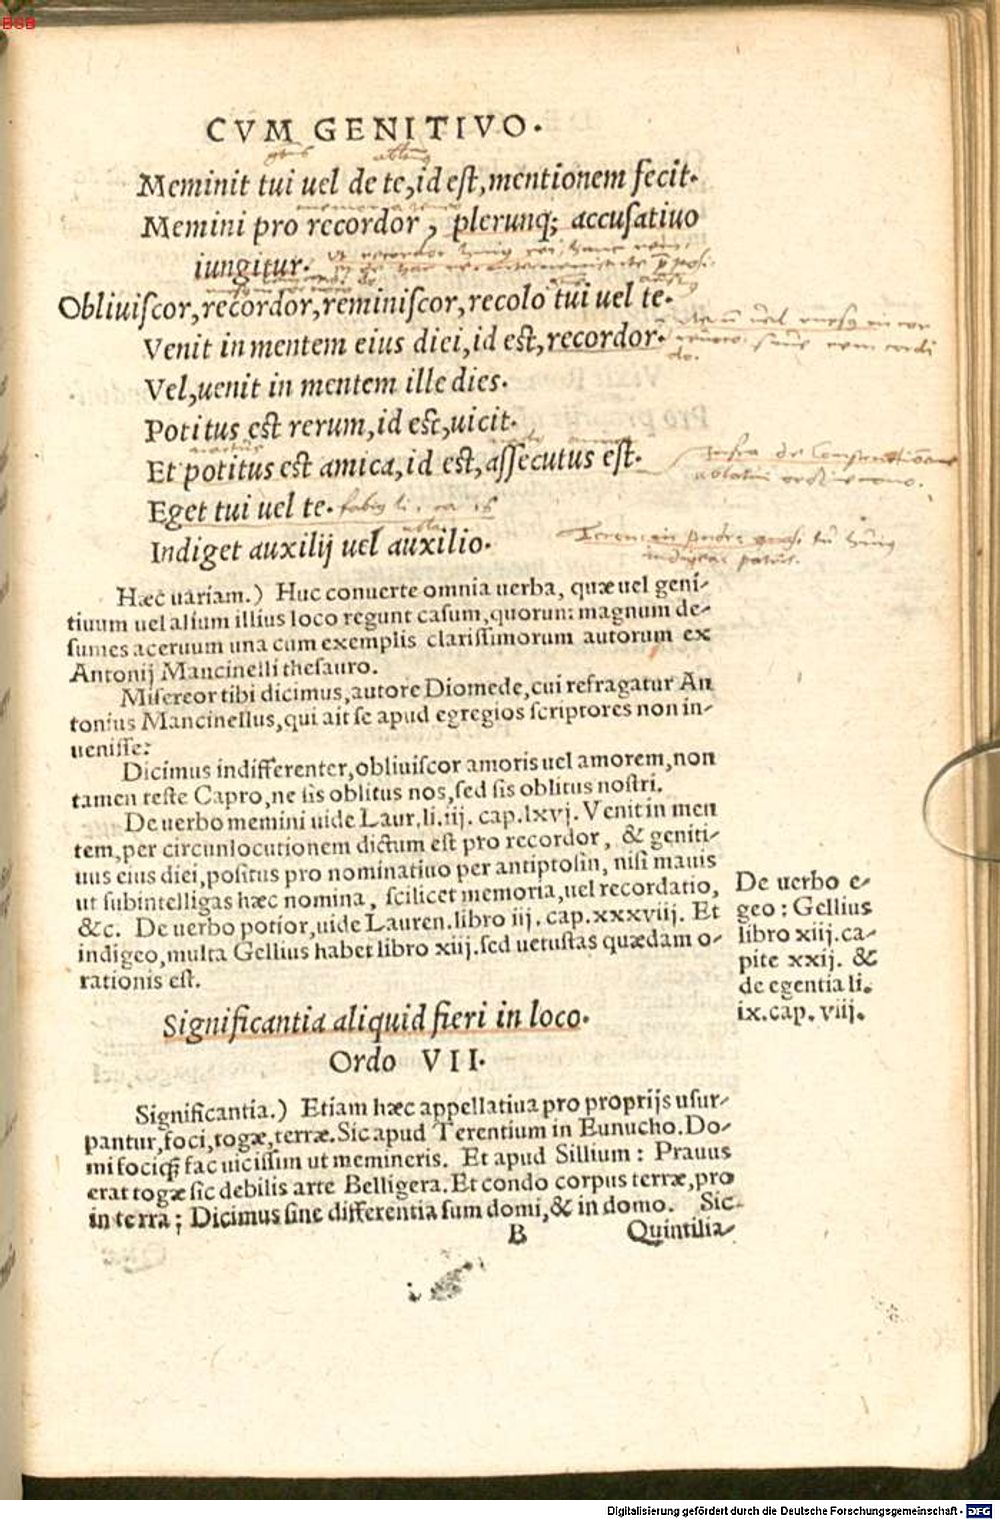 BSB
CVM GENITIVO.
Meminit tui uel de te, id eſt, mentionem fecit.
Memini pro recordor, plerunq; accuſatiuo
iungitur.
Obliuiſcor, recordor, reminiſcor, recolo tui uel te.
Venit in mentem eius diei, id eſt, recordor.
Vel, uenit in mentem ille dies.
Potitus eſt rerum, id eſt, uicit.
Et potitus eſt amica, id eſt, aſſecutus eſt.
Eget tui uel te.
Indiget auxilij uel auxilio.
Hæc uariam.) Huc conuerte omnia uerba, quæ uel geni-
tiuum uel alium illius loco regunt caſum, quorum magnum de-
ſumes aceruum una cum exemplis clariſſimorum autorum ex
Antonij Mancinelli theſauro.
Miſereor tibi dicimus, autore Diomede, cui refragatur An
tonius Mancinellus, qui ait ſe apud egregios ſcriptores non in-
ueniſſe:
Dicimus indifferenter, obliuiſcor amoris uel amorem, non
tamen teſte Capro, ne ſis oblitus nos, ſed ſis oblitus noſtri.
De uerbo memini uide Laur. li. iij. cap. lxvj. Venit in men
tem, per circunlocutionem dictum eſt pro recordor, & geniti-
uus eius diei, poſitus pro nominatiuo per antiptoſin, niſi mauis
ut ſubintelligas hæc nomina, ſcilicet memoria, uel recordatio,
&c. De uerbo potior, uide Lauren. libro iij. cap. xxxviij. Et
indigeo, multa Gellius habet libro xiij. ſed uetuſtas quædam o-
rationis eſt.
De uerbo e-
geo: Gellius
libro xiij. ca-
pite xxij. &
de egentia li.
ix. cap. viij.
Significantia aliquid fieri in loco.
Ordo VII.
Significantia.) Etiam hæc appellatiua pro proprijs uſur-
pantur, foci, togæ, terræ. Sic apud Terentium in Eunucho. Do-
mi fociq́; fac uiciſſim ut memineris. Et apud Sillium: Prauus
erat togæ ſic debilis arte Belligera. Et condo corpus terræ, pro
in terra; Dicimus ſine differentia ſum domi, & in domo. Sic
B Quintilia-
Digitalisierung gefördert durch die Deutsche Forschungsgemeinschaft - DFG